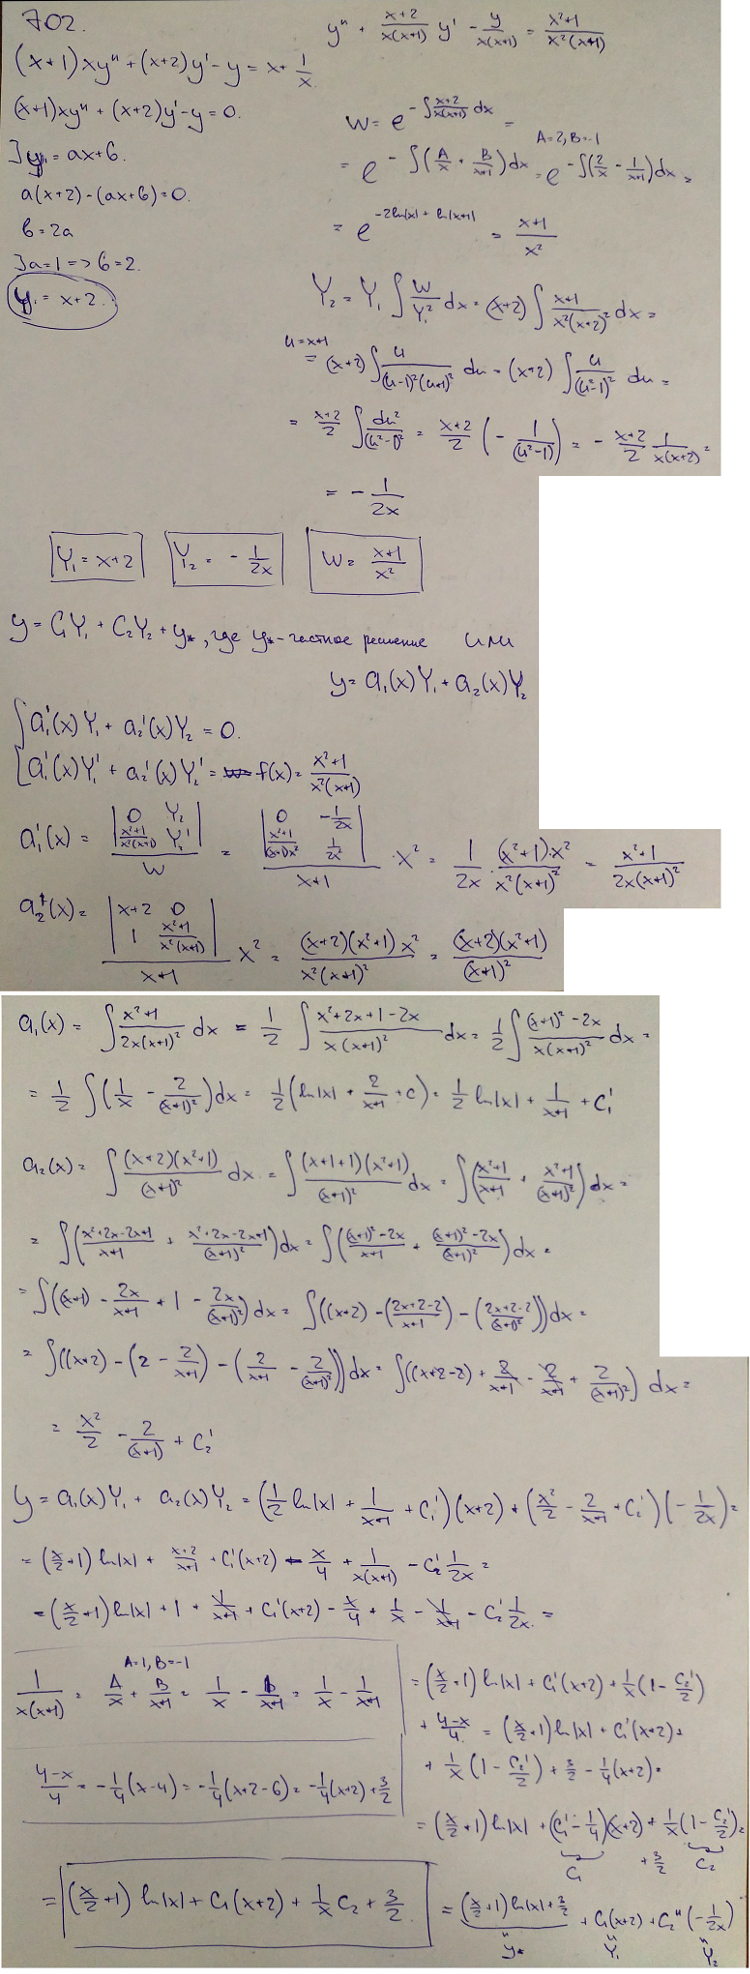 702.
(x+1)xy'' + (x+2)y' - y = x + 1/x.
(x+1)xy'' + (x+2)y' - y = 0.
] y₁ = ax+b.
a(x+2) - (ax+b) = 0.
b = 2a
] a=1 => b=2.
y₁ = x+2.
y'' + (x+2)/(x(x+1)) y' - y/(x(x+1)) = (x²+1)/(x²(x+1))
W = e^(-∫ (x+2)/(x(x+1)) dx) =
A=2, B=-1
= e^(-∫(A/x + B/(x+1))dx) = e^(-∫(2/x - 1/(x+1))dx) =
= e^(-2ln|x| + ln|x+1|) = (x+1)/x²
Y₂ = Y₁ ∫ W/Y₁² dx = (x+2) ∫ (x+1)/(x²(x+2)²) dx =
u=x+1
= (x+2) ∫ u/((u-1)²(u+1)²) du = (x+2) ∫ u/(u²-1)² du =
= (x+2)/2 ∫ du²/(u²-1)² = (x+2)/2 (- 1/(u²-1)) = - (x+2)/2 1/(x(x+2)) =
= - 1/(2x)
Y₁ = x+2 Y₂ = - 1/(2x) W = (x+1)/x²
y = C₁Y₁ + C₂Y₂ + y*, где y* - частное решение или
y = a₁(x)Y₁ + a₂(x)Y₂
{ a₁'(x)Y₁ + a₂'(x)Y₂ = 0.
a₁'(x)Y₁' + a₂'(x)Y₂' = f(x) = (x²+1)/(x²(x+1))
a₁'(x) = |0 Y₂; (x²+1)/(x²(x+1)) Y₂'| / W = |0 -1/(2x); (x²+1)/((x+1)x²) 1/(2x²)| / (x+1) · x² = 1/(2x) · (x²+1)·x²/(x²(x+1)²) = (x²+1)/(2x(x+1)²)
a₂'(x) = |x+2 0; 1 (x²+1)/(x²(x+1))| / (x+1) x² = (x+2)(x²+1)x²/(x²(x+1)²) = (x+2)(x²+1)/(x+1)²
a₁(x) = ∫ (x²+1)/(2x(x+1)²) dx = 1/2 ∫ (x²+2x+1-2x)/(x(x+1)²) dx = 1/2 ∫ ((x+1)²-2x)/(x(x+1)²) dx =
= 1/2 ∫ (1/x - 2/(x+1)²)dx = 1/2 (ln|x| + 2/(x+1) + C) = 1/2 ln|x| + 1/(x+1) + C₁'
a₂(x) = ∫ (x+2)(x²+1)/(x+1)² dx = ∫ (x+1+1)(x²+1)/(x+1)² dx = ∫((x²+1)/(x+1) + (x²+1)/(x+1)²)dx =
= ∫((x²+2x-2x+1)/(x+1) + (x²+2x-2x+1)/(x+1)²)dx = ∫(((x+1)²-2x)/(x+1) + ((x+1)²-2x)/(x+1)²)dx =
= ∫((x+1) - 2x/(x+1) + 1 - 2x/(x+1)²)dx = ∫((x+2) - ((2x+2-2)/(x+1)) - ((2x+2-2)/(x+1)²))dx =
= ∫((x+2) - (2 - 2/(x+1)) - (2/(x+1) - 2/(x+1)²))dx = ∫((x+2-2) + 2/(x+1) - 2/(x+1) + 2/(x+1)²) dx =
= x²/2 - 2/(x+1) + C₂'
y = a₁(x)Y₁ + a₂(x)Y₂ = (1/2 ln|x| + 1/(x+1) + C₁')(x+2) + (x²/2 - 2/(x+1) + C₂')(- 1/(2x)) =
= (x/2+1) ln|x| + (x+2)/(x+1) + C₁'(x+2) - x/4 + 1/(x(x+1)) - C₂' 1/(2x) =
= (x/2+1) ln|x| + 1 + 1/(x+1) + C₁'(x+2) - x/4 + 1/x - 1/(x+1) - C₂' 1/(2x) =
A=1, B=-1
1/(x(x+1)) = A/x + B/(x+1) = 1/x - 1/(x+1) = 1/x - 1/(x+1)
(4-x)/4 = -1/4(x-4) = -1/4(x+2-6) = -1/4(x+2) + 3/2
= (x/2+1) ln|x| + C₁'(x+2) + 1/x(1 - C₂'/2)
+ (4-x)/4 = (x/2+1) ln|x| + C₁'(x+2) +
+ 1/x (1 - C₂'/2) + 3/2 - 1/4(x+2) =
= (x/2+1) ln|x| + (C₁' - 1/4)(x+2) + 1/x(1 - C₂'/2) =
C₁ + 3/2 C₂
= (x/2+1) ln|x| + C₁(x+2) + 1/x C₂ + 3/2.
= (x/2+1) ln|x| + 3/2 + C₁(x+2) + C₂''(-1/(2x))
y* Y₁ Y₂